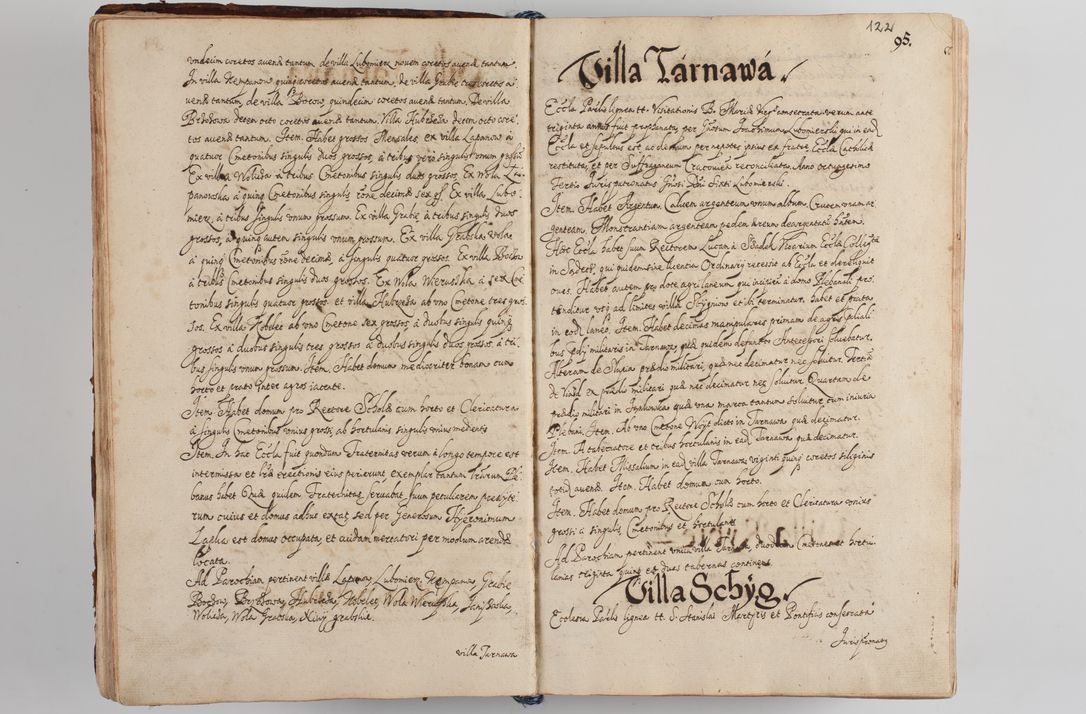 vndecim coretos auenæ tantum de villa Lubomierz nouem coretos auenæ tantum.
In villa Kempanow quinq coretos auenæ tantum, de villa Grabie tres coretos a
uenæ tantum, de villa Boczow quindecim coretos auenæ tantum, De villa
Brzezowa decem octo coretos auenæ tantum. Villa Kubrzesza decem octo core
tos auenæ tantum. Item. Habet grossos Mensales, ex villa Lapanow à
quatuor Cmetonibus singulis duos grossos, à tribus vero singulis vnum grossum
Ex villa Wolicza à tribus Cmetonibus singulis duos grossos, Ex Wola La
panowska à quinq Cmetonibus singulis rõne decimæ sex gr. Ex villa Lubo
mierz, à tribus singulis vnum grossum. Ex villa Grabie à tribus singulis duos
grossos, à quinq autem singulis vnum grossum. Ex villa Grabska wola
à quinq Cmetonibus rõne decimæ, à singulis quatuor grossos. Ex villa Boczow
à tribus Cmetonibus singulis duos grossos. Ex Wola Wieruska à sex Cme
tonibus singulis quatuor grossos. et villa Kubrzesza ab vno Cmetone tres gros
sos. Ex villa Kobelec ab vno Cmetone sex grossos, à duobus singulis quinq
grossos à duobus singulis tres grossos à duobus singulis duos grossos, à tri
bus singulis vnum grossum. Item. Habet domum mediocriter bonam cum
horto et prato inter agros iacente.
Item. Habet domum pro Rectore Scholæ cum horto et Clericatura
à singulis Cmetonibus vnius grossi, ab hortulanis singulis vnius medentis
Item. In hac Eccla fuit quondam Fraternitas verum à longo tempore est
intermissa et lræ erectionis eius perierunt exemplar tantum illarum Ple
banus habet Quæ quidem Fraternitas seruabat suum peculiarem presbyte
rum cuius et domus adhuc extat, sed per Generosum Hyeronimum
est domus occupata et cuidam mercatori per modum arendæ
locata.
Ad Parochiam pertinent villæ Lapanow, Lubomierz, Kempanow, Grabie
Boczow, Brzezowa, Kubrzesza, Kobelec, Wola Wieruska,
Wolicza, Wola Grabska,
villa Tarnawa
122
95.
Villa Tarnawá
Eccla Parlis lignea tt. Visitationis B. Mariæ Virg. consecrata verum ante
triginta annos fuit prophanata per Gnosum Joachimum Lubomierski qui in eadẽ
Eccla et sepultus est, ac demum per nepotes ipsius ex fratre, Eccla Catholicæ
restituta, et per Suffraganeum Cracouien reconciliata, Anno octuagesimo
Tertio Juris patronatus Gnosi Dñi Sixti Lubomierski.
Item. Habet Argentum Calicem argenteum vnum album. Crucem vnam ar
genteam, Monstrantiam argenteam pedem æreum deargentatũ habentem.
Hæc Eccla habet suum Rectorem Lucam à Sadek Vicarium Eccla Collegtæ
in Sandecz qui quidem sine licentia Ordinarij recessit ab Eccla et dereliquit
oues. Habet autem pro dote agri laneum qui incipit à domo Plebanali pro
tenditur vsq ad limites villæ Szygniow et ibi terminatur. habet et prata
in eodẽ laneo. Item. Habet decimas manipulares primam de agris
bus prædij militaris in Tarnawa quæ quidem defuncto Antecessori soluebatur.
Alteram de Slupia prædio militari, quæ nec decimatur nec soluitur, Tertiã
de ex prædio militari quæ nec decimatur nec soluitur Quartam de
prædio militari in quæ vna marca tantum soluitur cum iniuria
Plebani. Item. Ab vno Cmetone Woyt dicto in Tarnawa quæ decimatur.
Item. A tabernatore et tribus hortulanis in eadẽ Tarnawa quæ decimatur.
Item. Habet Missalium in eadẽ villa Tarnawa, viginti quinq coretos siliginis
totidẽ auenæ. Item. Habet domum cum horto.
Item. Habet domum pro Rectore Scholæ cum horto et Clericatura vnius
grossi à singulis Cmetonibus et hortulanis
Ad Parochiam pertinet vnica villa Tarnawa, duodecim Cmetones et hortu
lanias triginta quinq et duas tabernas continens.
Villa Schÿg.
Ecclesia Parlis lignea tt. S. Stanislai Martyris et Pontificis consecrata
Juris patronatus